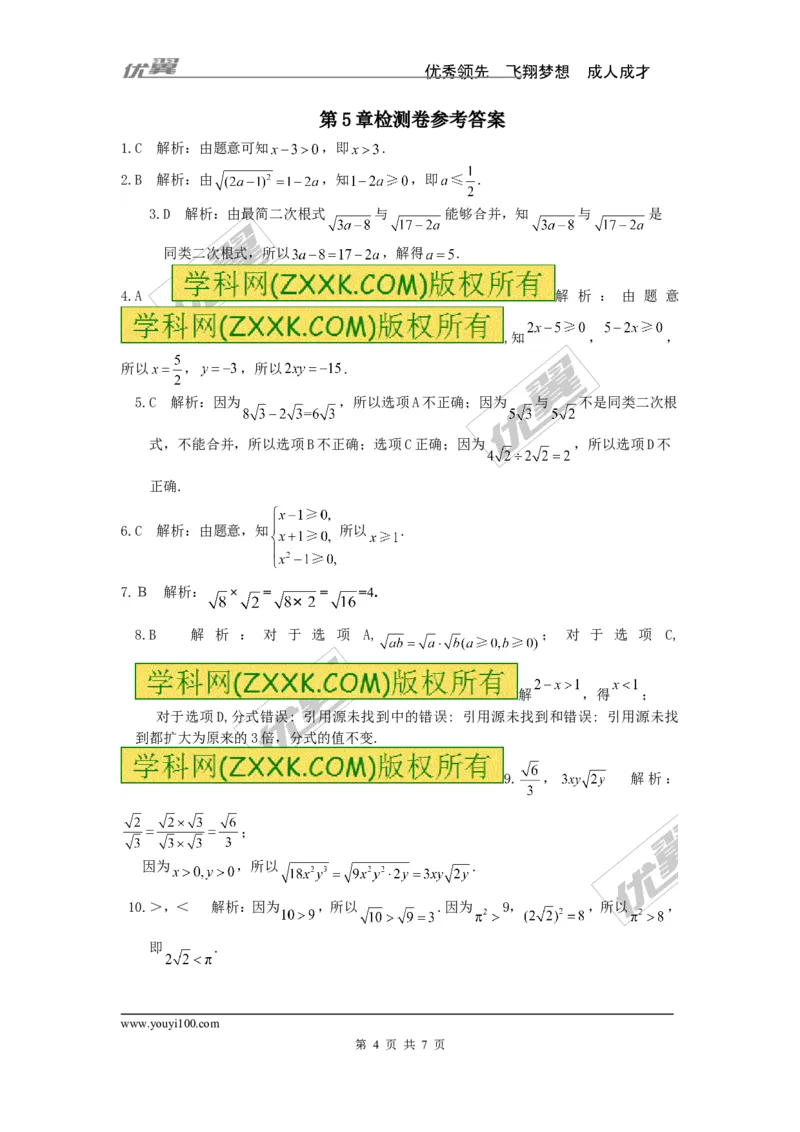 优翼 优秀领先 飞翔梦想 成人成才
第5章检测卷参考答案
1.C 解析：由题意可知x－3＞0，即x＞3．
2.B 解析：由√(2a－1)² ＝1－2a，知1－2a≥0，即a≤1/2．
3.D 解析：由最简二次根式√3a－8与√17－2a能够合并，知√3a－8与√17－2a是
同类二次根式，所以3a－8＝17－2a，解得a＝5．
学科网(ZXXK.COM)版权所有
4.A 解析：由题意
学科网(ZXXK.COM)版权所有,知2x－5≥0，5－2x≥0，
所以x＝5/2，y＝－3，所以2xy＝－15．
5.C 解析：因为8√3－2√3=6√3，所以选项A不正确；因为5√3与5√2不是同类二次根
式，不能合并，所以选项B不正确；选项C正确；因为4√2÷2√2＝2，所以选项D不
正确．
6.C 解析：由题意，知{x－1≥0, x＋1≥0, x²－1≥0, 所以x≥1．
7.B 解析：√8×√2=√8×2=√16=4.
8.B 解析：对于选项A,√ab＝√a·√b(a≥0,b≥0)；对于选项C,
学科网(ZXXK.COM)版权所有解2－x＞1，得x＜1；
对于选项D,分式错误: 引用源未找到中的错误: 引用源未找到和错误: 引用源未找
到都扩大为原来的3倍，分式的值不变．
学科网(ZXXK.COM)版权所有9.√6/3，3xy√2y 解析：
√2/√3＝√2×√3/√3×√3＝√6/3；
因为x＞0,y＞0，所以√18x²y³＝√9x²y²·2y＝3xy√2y．
10.＞,＜ 解析：因为10＞9，所以√10＞√9＝3．因为π²＞9，(2√2)²＝8，所以π²＞8，
即2√2＜π．
www.youyi100.com
第 4 页 共 7 页